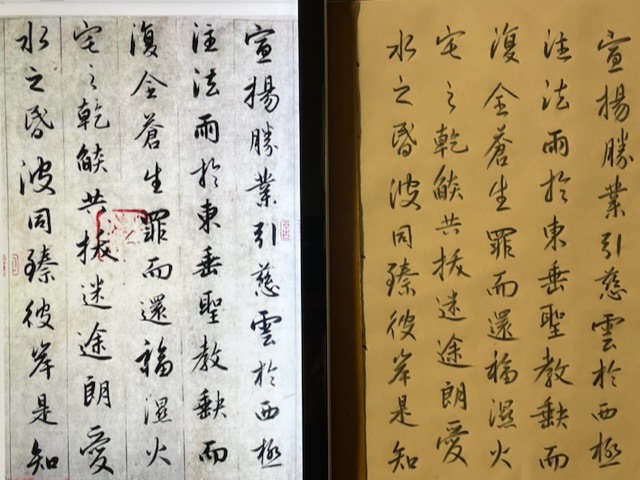 宣揚勝業引慈雲於西極
注法雨於東垂聖教缺而
復全蒼生罪而還福濕火
宅之乾燄共拔迷途朗愛
水之昏波同臻彼岸是知
宣揚勝業引慈雲於西極
注法雨於東垂聖教缺而
復全蒼生罪而還福濕火
宅之乾燄共拔迷途朗愛
水之昏波同臻彼岸是知